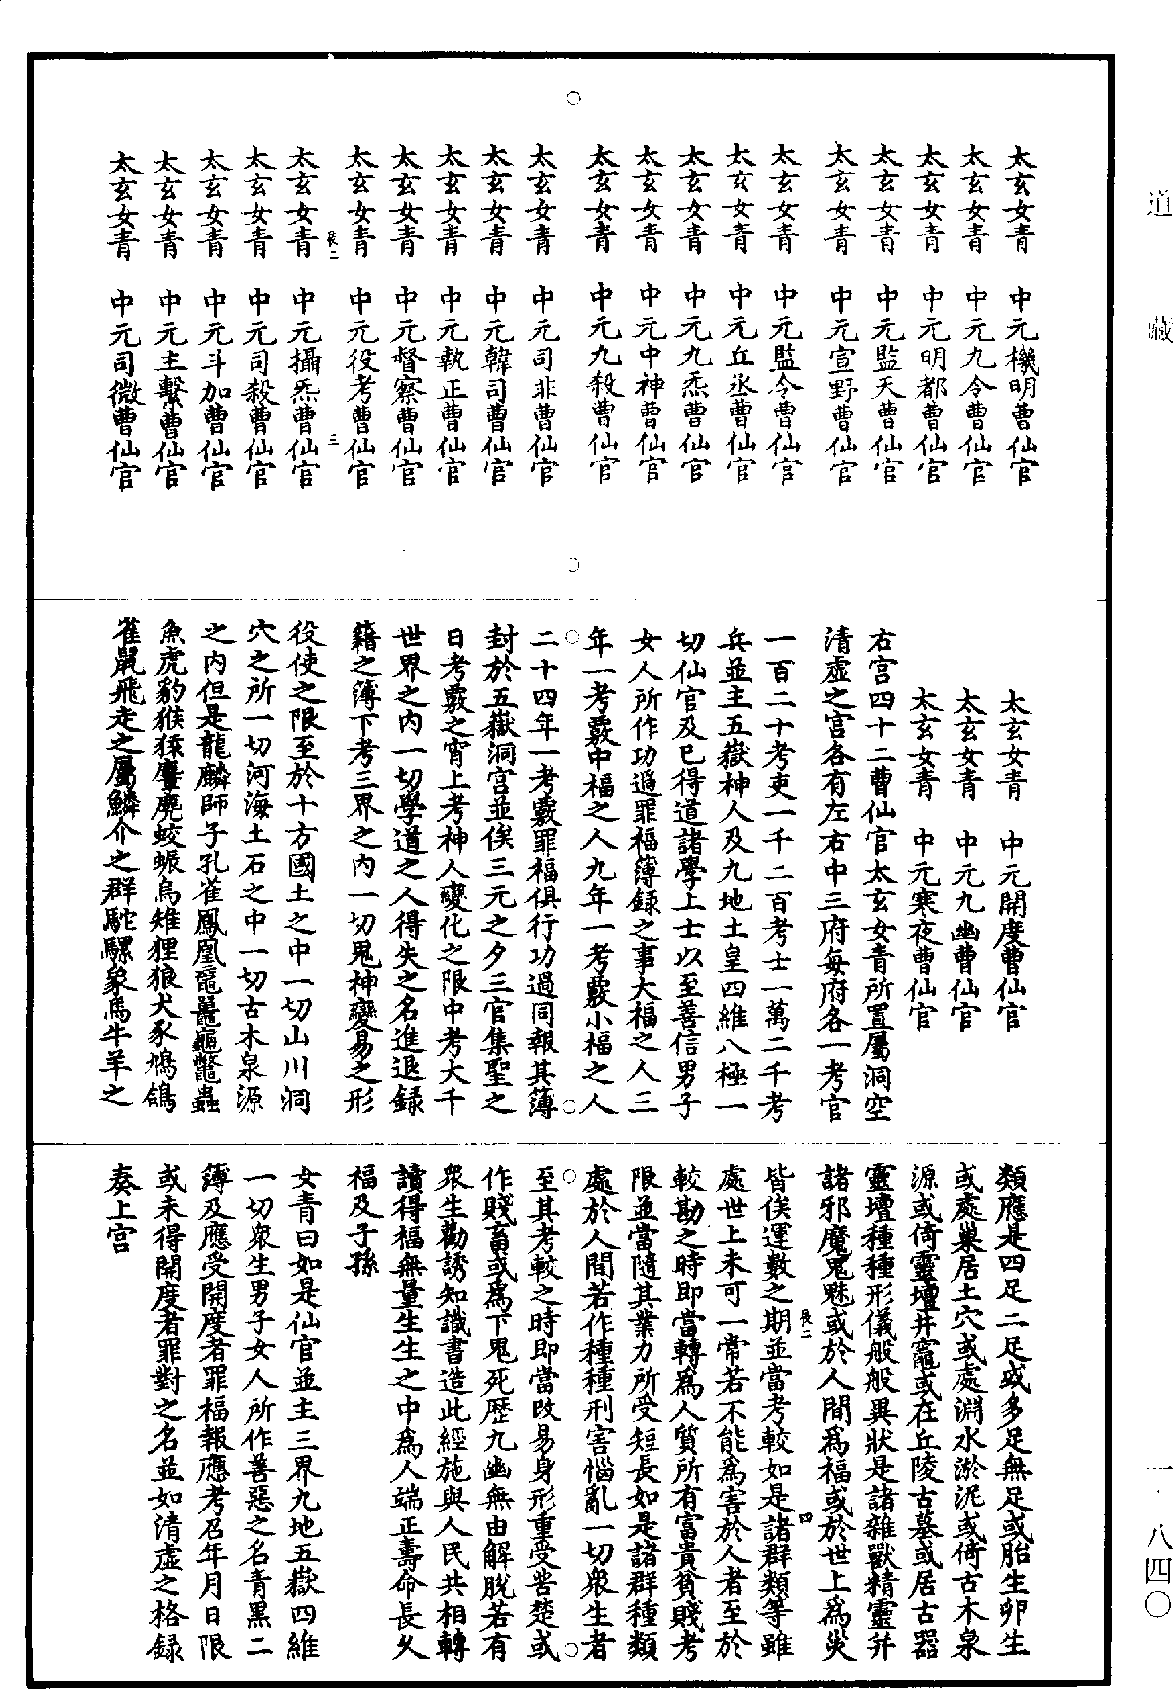 道藏
太玄女青　中元機明曹仙官
太玄女青　中元九令曹仙官
太玄女青　中元明都曹仙官
太玄女青　中元監天曹仙官
太玄女青　中元宣野曹仙官
太玄女青　中元監令曹仙官
太玄女青　中元丘丞曹仙官
太玄女青　中元九炁曹仙官
太玄女青　中元中神曹仙官
太玄女青　中元九殺曹仙官
太玄女青　中元司非曹仙官
太玄女青　中元韓司曹仙官
太玄女青　中元執正曹仙官
太玄女青　中元督察曹仙官
太玄女青　中元役考曹仙官
三
太玄女青　中元攝炁曹仙官
太玄女青　中元司殺曹仙官
太玄女青　中元斗加曹仙官
太玄女青　中元主繫曹仙官
太玄女青　中元司微曹仙官
太玄女青　中元開度曹仙官
太玄女青　中元九幽曹仙官
太玄女青　中元寒夜曹仙官
右宮四十二曹仙官太玄女青所置屬洞空
清虛之宮各有左右中三府每府各一考官
一百二十考吏一千二百考士一萬二千考
兵並主五嶽神人及九地土皇四維八極一
切仙官及已得道諸學上士以至善信男子
女人所作功過罪福簿錄之事大福之人三
年一考覈中福之人九年一考覈小福之人
二十四年一考覈罪福俱行功過同報其簿
封於五嶽洞宮並俟三元之夕三官集聖之
日考覈之宵上考神人變化之限中考大千
世界之內一切學道之人得失之名進退錄
籍之簿下考三界之內一切鬼神變易之形
役使之限至於十方國土之中一切山川洞
穴之所一切河海土石之中一切古木泉源
之內但是龍麟師子孔雀鳳凰黿鼉龜鼈蟲
魚虎豹猴猱麞麂蛟蜃烏雉狸狼犬豕鳩鴿
雀鼠飛走之屬鱗介之群駝騾象馬牛羊之
類應是四足二足或多足無足或胎生卵生
或處巢居土穴或處淵水淤泥或倚古木泉
源或倚靈壇井竈或在丘陵古墓或居古器
靈壇種種形儀般般異狀是諸雜獸精靈并
諸邪魔鬼魅或於人間為福或於世上為災
四
皆俟運數之期並當考較如是諸群類等雖
處世上未可一常若不能為害於人者至於
較勘之時即當轉為人質所有富貴貧賤考
限並當隨其業力所受短長如是諸群種類
處於人間若作種種刑害惱亂一切衆生者
至其考較之時即當改易身形重受苦楚或
作賤畜或為下鬼死歷九幽無由解脫若有
衆生勸誘知識書造此經施與人民共相轉
讀得福無量生生之中為人端正壽命長久
福及子孫
女青曰如是仙官並主三界九地五嶽四維
一切衆生男子女人所作善惡之名青黑二
簿及應受開度者罪福報應考召年月日限
或未得開度者罪對之名並如清虛之格錄
奏上宮
一·八四〇